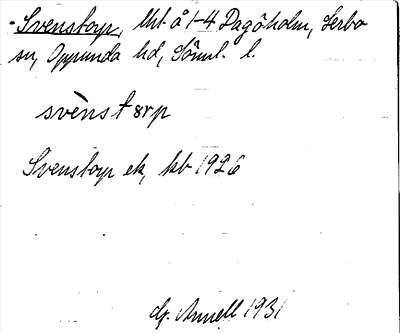 Svenstorp, lht å 1-4 Dagöholm, Lerbo
sn, Oppunda hd, Söml. l.
svènstorp
Svenstorp ek, kb 1926
G. Annell 1931